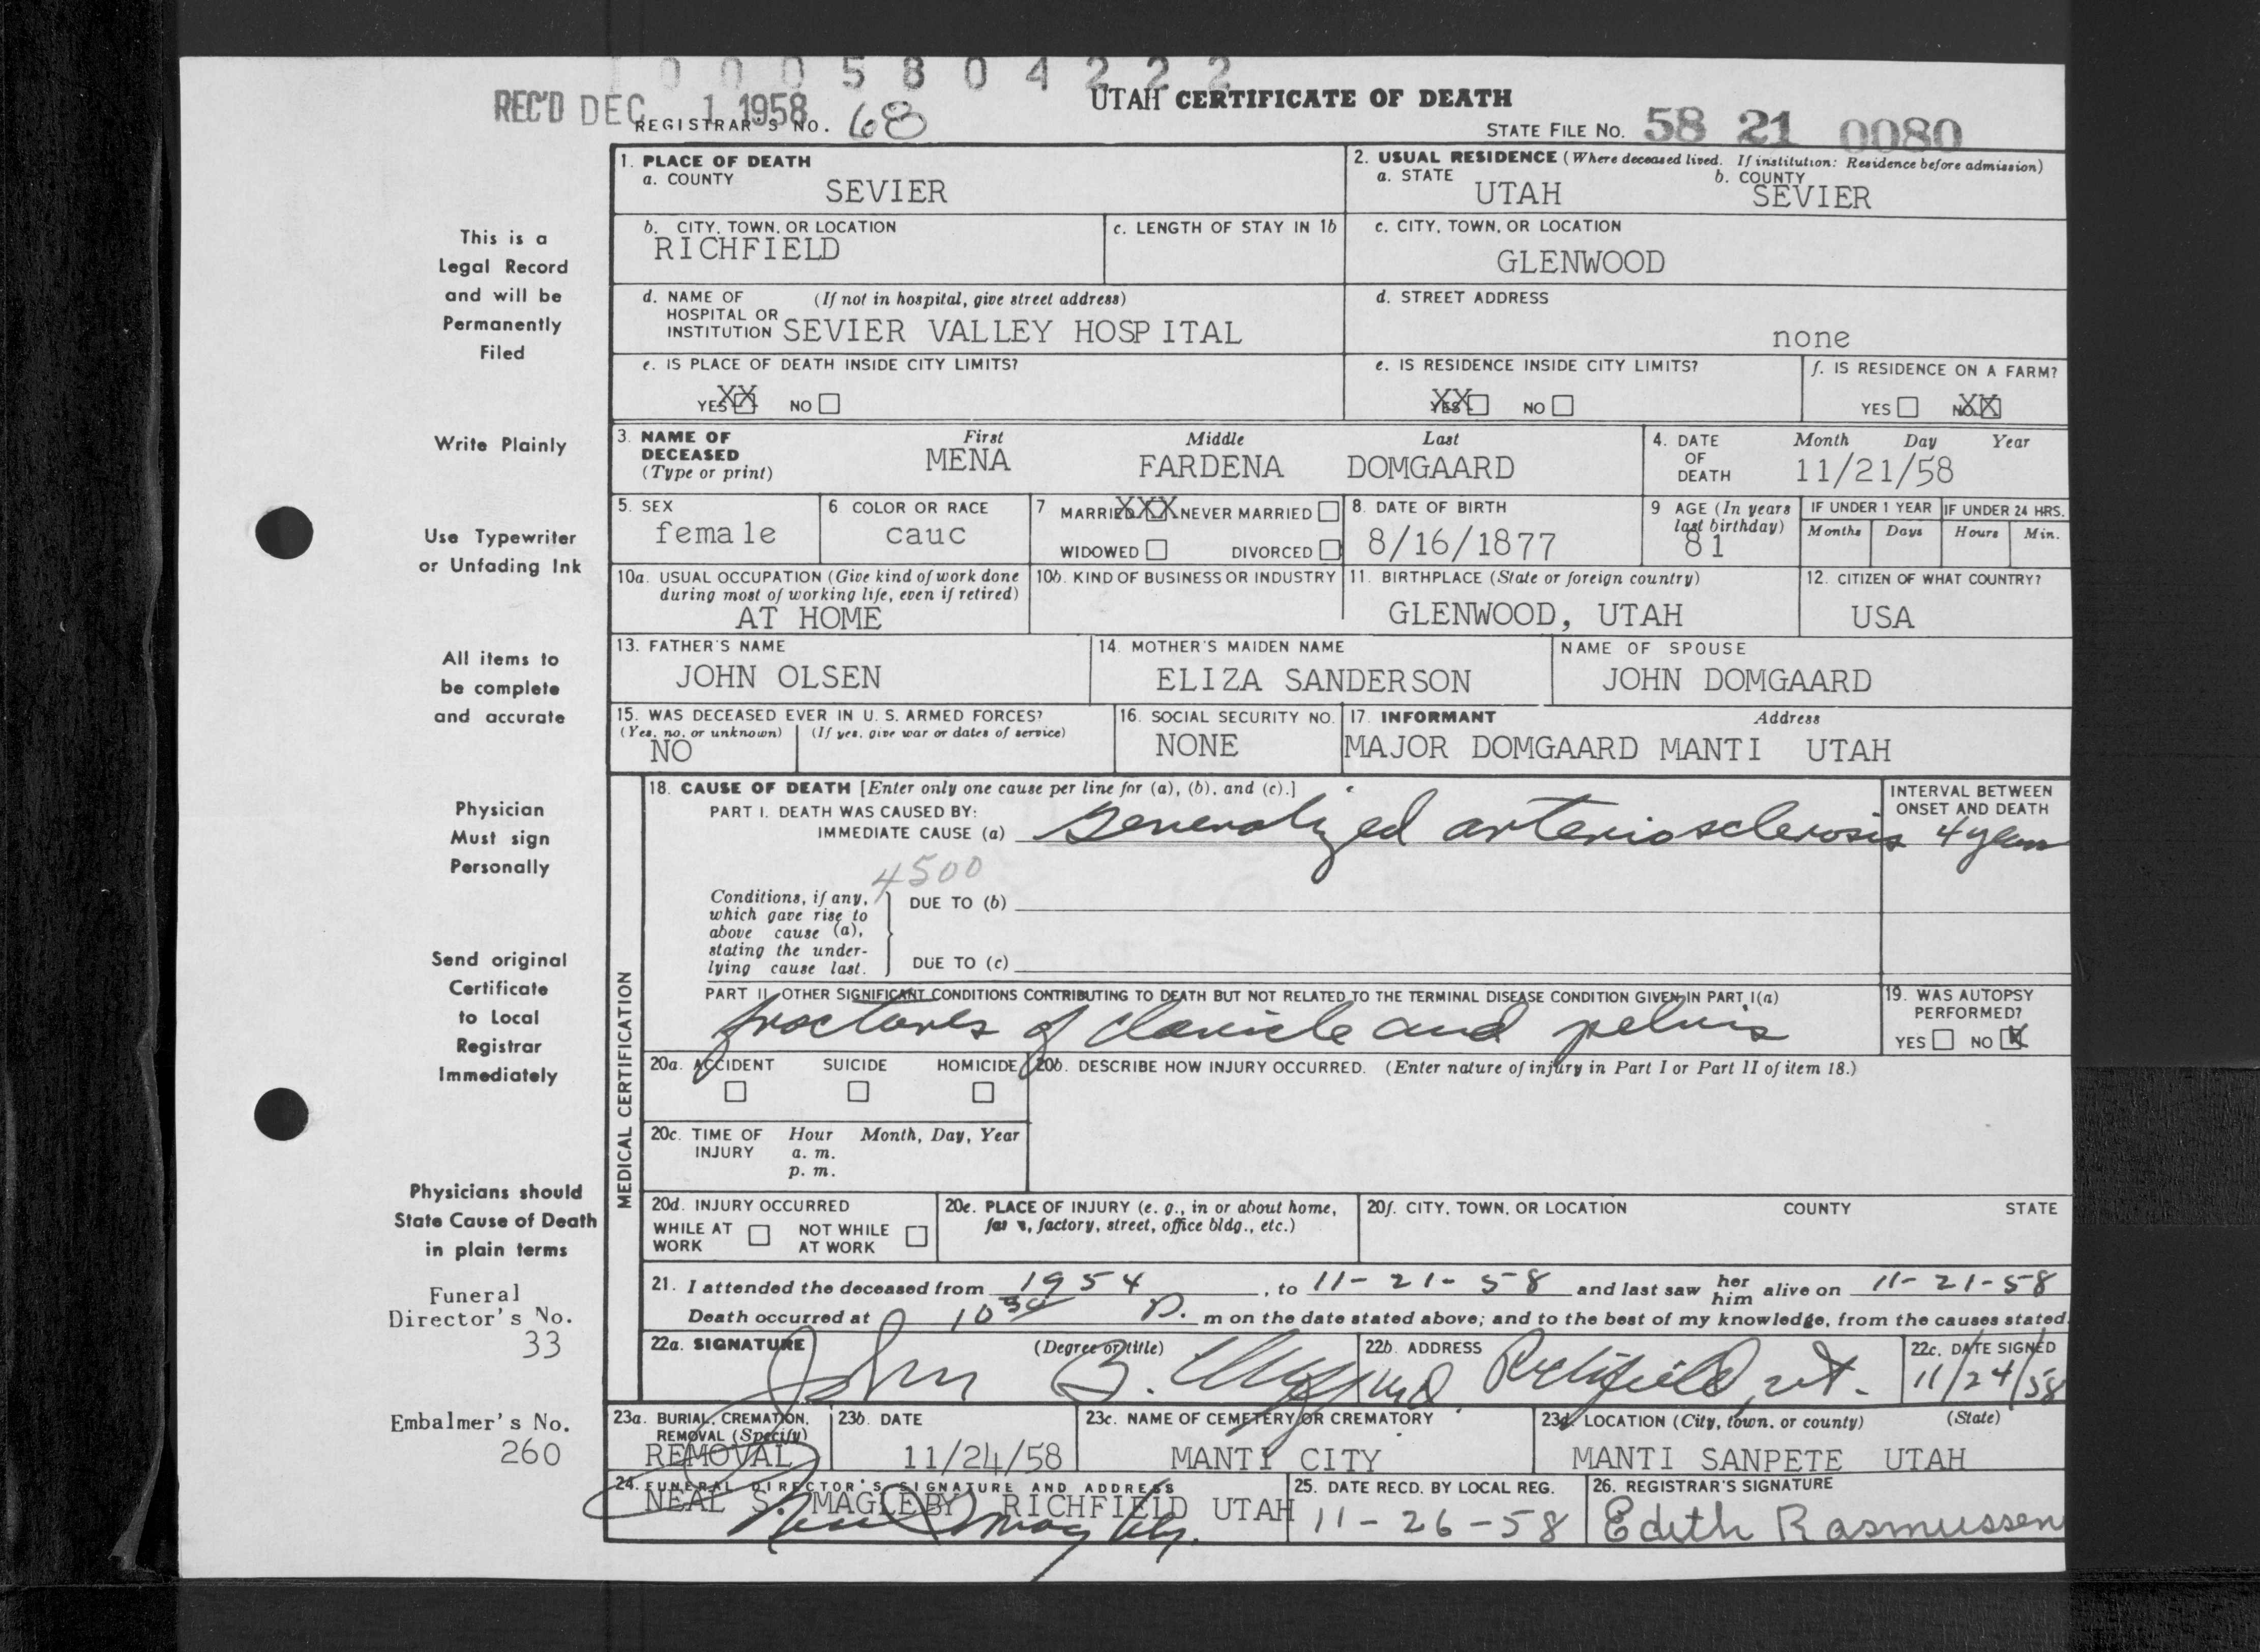 0005804222
REC'D DEC 1 1958
REGISTRAR'S NO. 68
UTAH CERTIFICATE OF DEATH
STATE FILE NO. 58 21 0080
This is a
Legal Record
and will be
Permanently
Filed
Write Plainly
Use Typewriter
or Unfading Ink
All items to
be complete
and accurate
Physician
Must sign
Personally
Send original
Certificate
to Local
Registrar
Immediately
Physicians should
State Cause of Death
in plain terms
Funeral
Director's No.
33
Embalmer's No.
260
1. PLACE OF DEATH
a. COUNTY
SEVIER
2. USUAL RESIDENCE (Where deceased lived. If institution: Residence before admission)
a. STATE
UTAH
b. COUNTY
SEVIER
b. CITY, TOWN, OR LOCATION
RICHFIELD
c. LENGTH OF STAY IN 1b
c. CITY, TOWN, OR LOCATION
GLENWOOD
d. NAME OF (If not in hospital, give street address)
HOSPITAL OR
INSTITUTION SEVIER VALLEY HOSPITAL
d. STREET ADDRESS
none
e. IS PLACE OF DEATH INSIDE CITY LIMITS?
YES XX NO
e. IS RESIDENCE INSIDE CITY LIMITS?
YES XX NO
f. IS RESIDENCE ON A FARM?
YES NO XX
3. NAME OF
DECEASED
(Type or print)
First Middle Last
MENA FARDENA DOMGAARD
4. DATE
OF
DEATH
Month Day Year
11/21/58
5. SEX
female
6 COLOR OR RACE
cauc
7 MARRIED XXX NEVER MARRIED
WIDOWED DIVORCED
8. DATE OF BIRTH
8/16/1877
9 AGE (In years
last birthday)
81
IF UNDER 1 YEAR
Months Days
IF UNDER 24 HRS.
Hours Min.
10a. USUAL OCCUPATION (Give kind of work done
during most of working life, even if retired)
AT HOME
10b. KIND OF BUSINESS OR INDUSTRY
11. BIRTHPLACE (State or foreign country)
GLENWOOD, UTAH
12. CITIZEN OF WHAT COUNTRY?
USA
13. FATHER'S NAME
JOHN OLSEN
14. MOTHER'S MAIDEN NAME
ELIZA SANDERSON
NAME OF SPOUSE
JOHN DOMGAARD
15. WAS DECEASED EVER IN U. S. ARMED FORCES?
(Yes, no, or unknown) (If yes, give war or dates of service)
NO
16. SOCIAL SECURITY NO.
NONE
17. INFORMANT Address
MAJOR DOMGAARD MANTI UTAH
MEDICAL CERTIFICATION
18. CAUSE OF DEATH [Enter only one cause per line for (a), (b), and (c).]
PART I. DEATH WAS CAUSED BY:
IMMEDIATE CAUSE (a) Generalized arteriosclerosis
INTERVAL BETWEEN
ONSET AND DEATH
4 years
4500
Conditions, if any,
which gave rise to
above cause (a),
stating the under-
lying cause last.
DUE TO (b)
DUE TO (c)
PART II. OTHER SIGNIFICANT CONDITIONS CONTRIBUTING TO DEATH BUT NOT RELATED TO THE TERMINAL DISEASE CONDITION GIVEN IN PART I(a)
fractures of clavicle and pelvis
19. WAS AUTOPSY
PERFORMED?
YES NO X
20a. ACCIDENT SUICIDE HOMICIDE
20b. DESCRIBE HOW INJURY OCCURRED. (Enter nature of injury in Part I or Part II of item 18.)
20c. TIME OF Hour Month, Day, Year
INJURY a. m.
p. m.
20d. INJURY OCCURRED
WHILE AT NOT WHILE
WORK AT WORK
20e. PLACE OF INJURY (e. g., in or about home,
farm, factory, street, office bldg., etc.)
20f. CITY, TOWN, OR LOCATION COUNTY STATE
21. I attended the deceased from 1954, to 11-21-58 and last saw her him alive on 11-21-58
Death occurred at 10 30 P. m on the date stated above; and to the best of my knowledge, from the causes stated.
22a. SIGNATURE (Degree or title)
John B. M.D.
22b. ADDRESS
Richfield, Ut.
22c. DATE SIGNED
11/24/58
23a. BURIAL, CREMATION,
REMOVAL (Specify)
REMOVAL
23b. DATE
11/24/58
23c. NAME OF CEMETERY OR CREMATORY
MANTI CITY
23d. LOCATION (City, town, or county) (State)
MANTI SANPETE UTAH
24. FUNERAL DIRECTOR'S SIGNATURE AND ADDRESS
NEAL S. MAGLEBY RICHFIELD UTAH
Neal S Magleby
25. DATE RECD. BY LOCAL REG.
11-26-58
26. REGISTRAR'S SIGNATURE
Edith Rasmussen